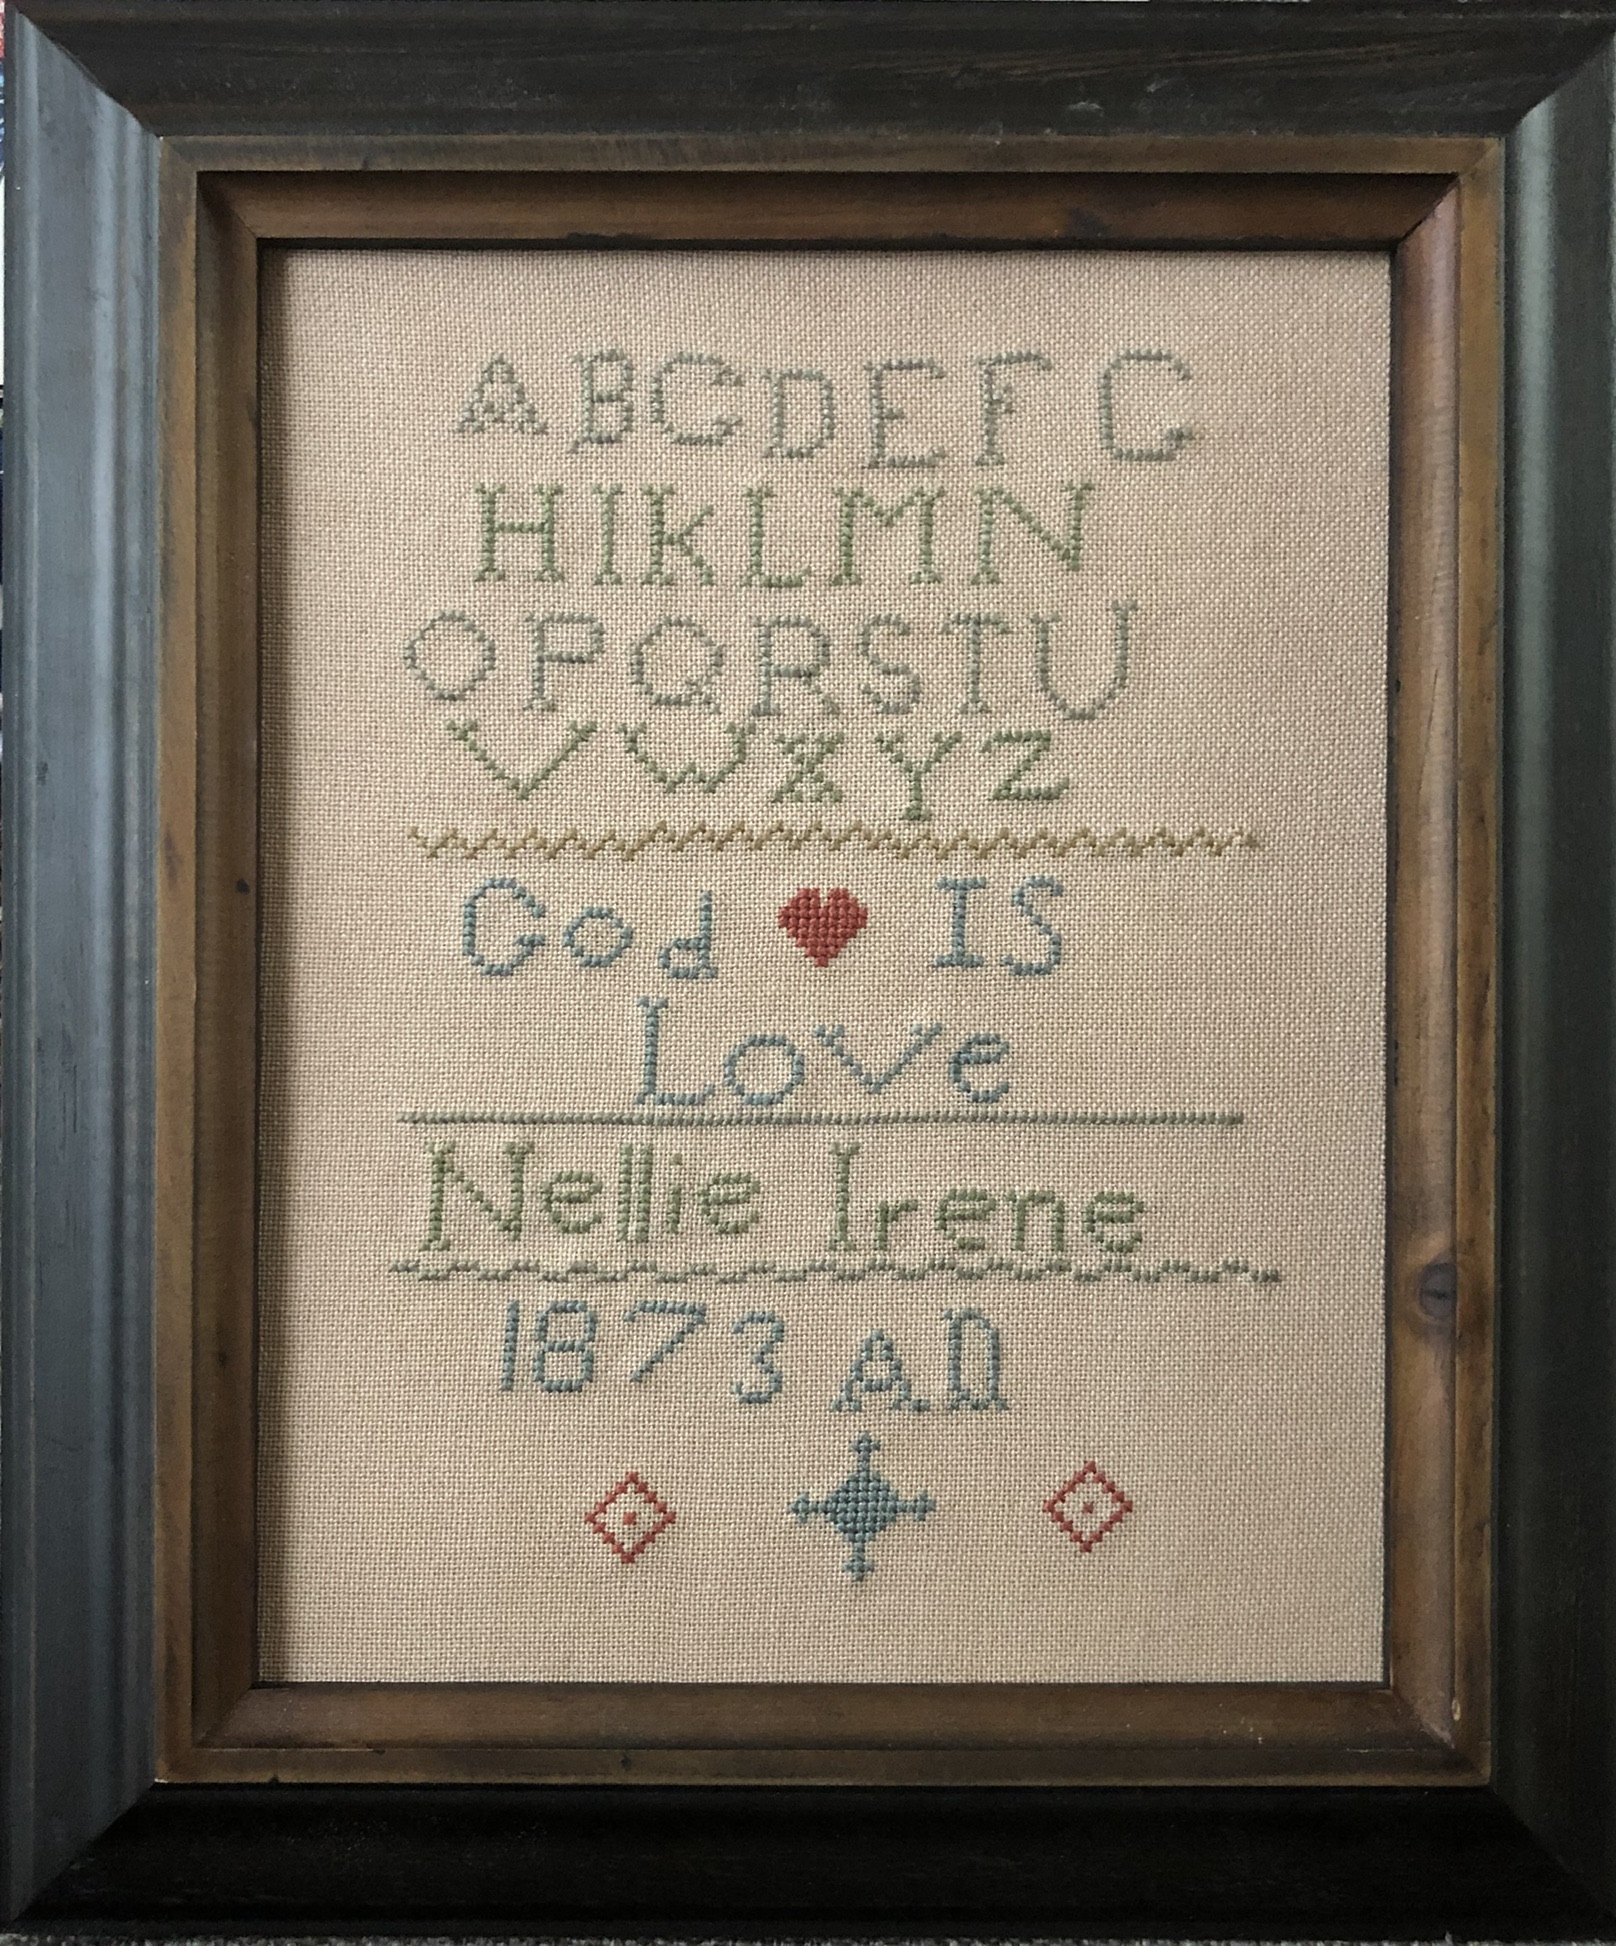 A B C D E F G
H I K L M N
O P Q R S T U
V W X Y Z
God IS
Love
Nellie Irene
1873 AD